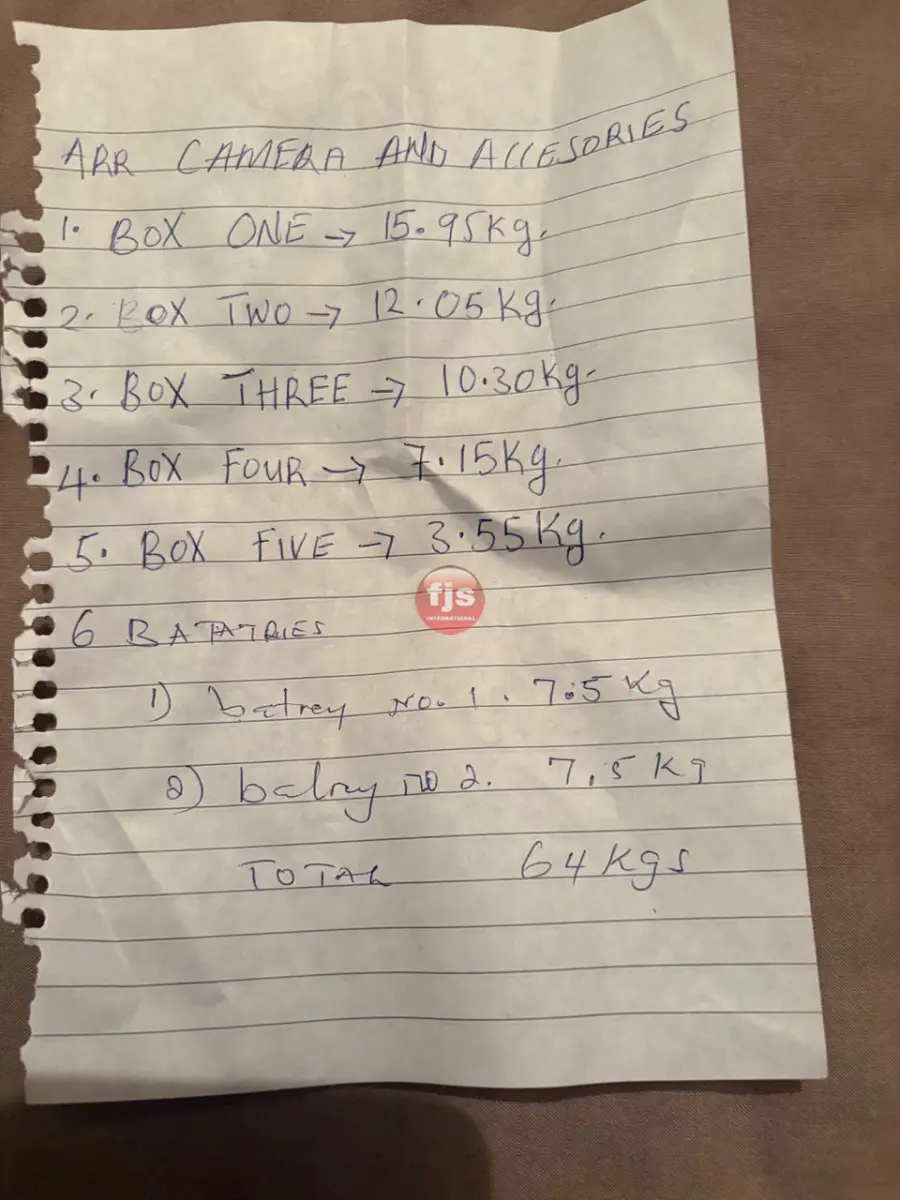 ARR CAMERA AND ACCESORIES
1. BOX ONE → 15.95Kg.
2. BOX TWO → 12.05Kg.
3. BOX THREE → 10.30Kg.
4. BOX FOUR → 7.15Kg.
5. BOX FIVE → 3.55Kg.
fjs
INTERNATIONAL
6 BATATRIES
1) batrey No. 1. 7.5 Kg
2) batry no 2. 7.5 Kg
TOTAL 64 Kgs